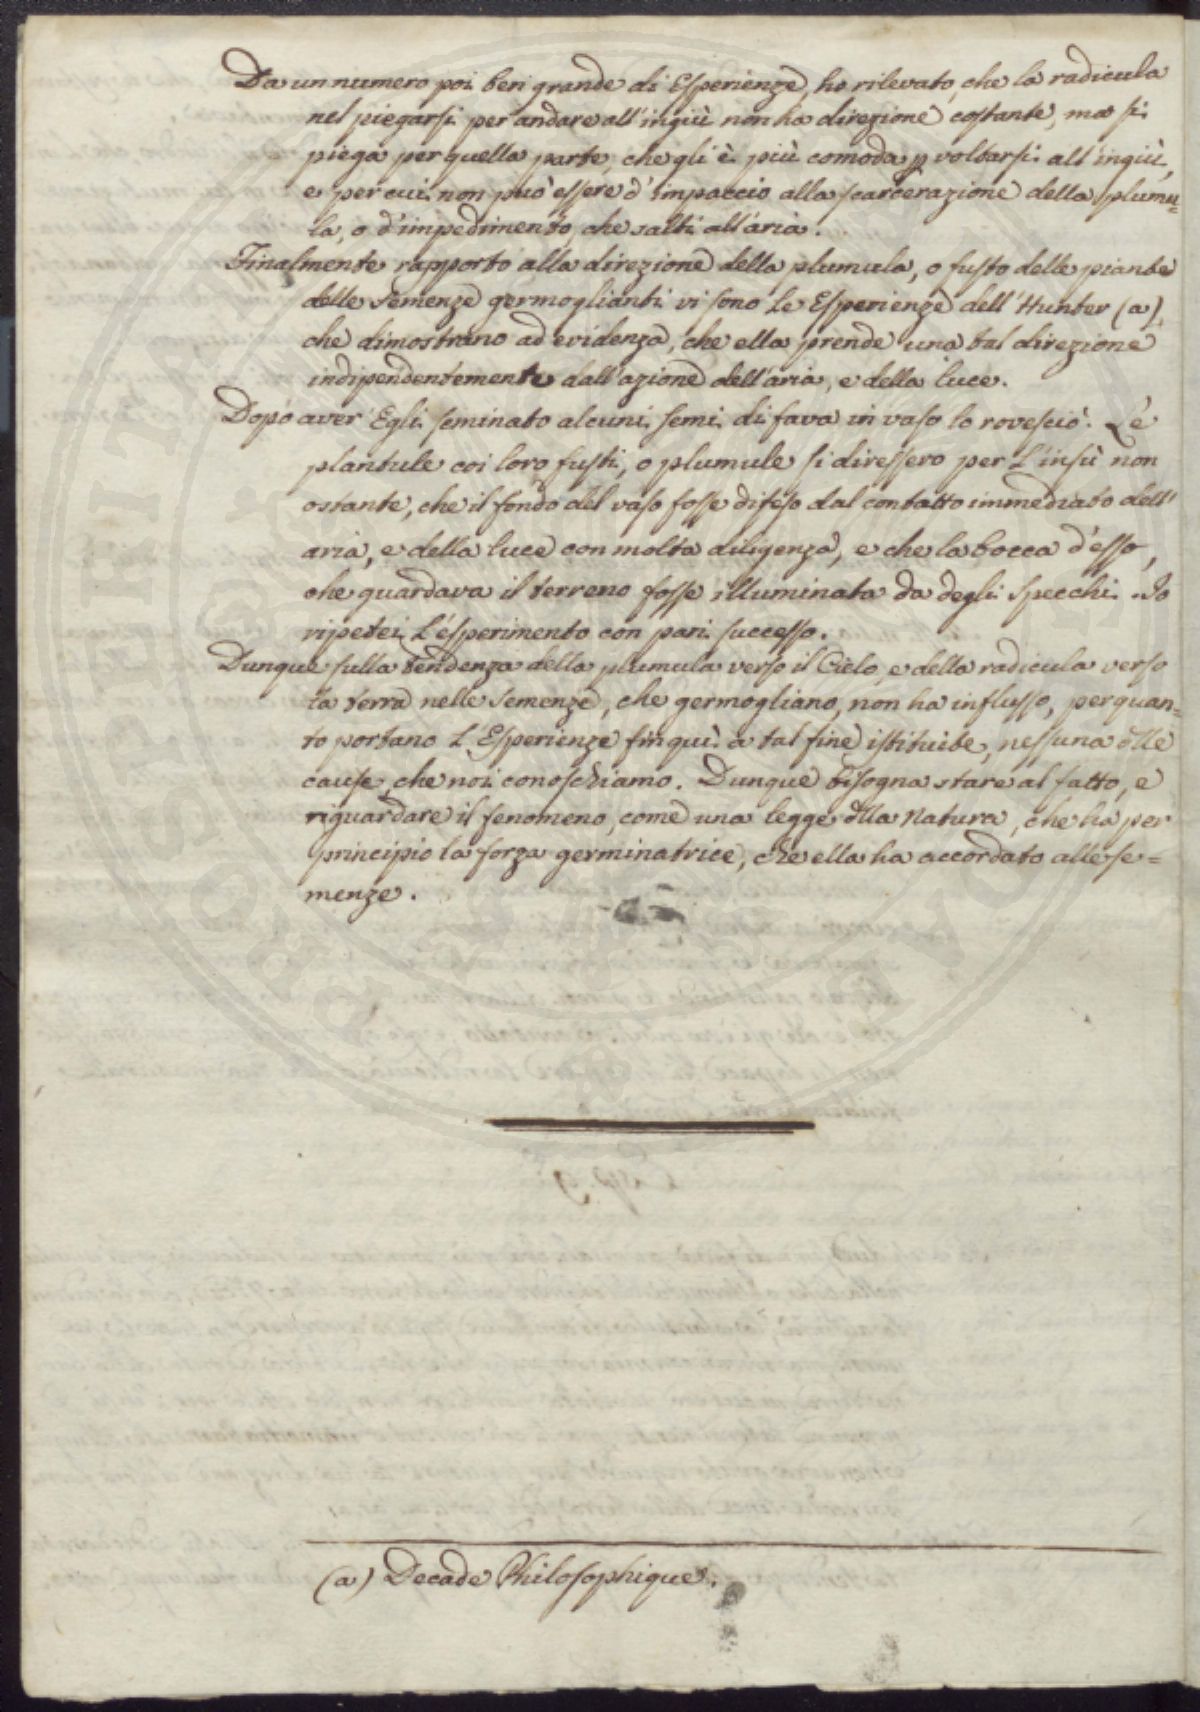 Da un numero poi ben grande di Esperienze, ho rilevato, che la radicula
nel piegarsi per andare all'ingiù non ha direzione costante, ma si
piega per quella parte, che gli è più comoda p voltarsi all'ingiù,
e per cui non può essere d'impaccio alla scarcerazione della plumu=
la, o d'impedimento, che salti all'aria.
Finalmente rapporto alla direzione della plumula, o fusto delle piante
delle semenze germoglianti vi sono le Esperienze dell'Hunter (a),
che dimostrano ad evidenza, che ella prende una tal direzione
indipendentemente dall'azione dell'aria, e della luce.
Dopo aver Egli seminato alcuni semi di fava in vaso lo rovesciò. Le
plantule coi loro fusti, o plumule si diressero per l'insù non
ostante, che il fondo del vaso fosse difeso dal contatto immediato dell'
aria, e della luce con molta diligenza, e che la bocca d'esso,
che guardava il terreno fosse illuminata da degli specchi. Io
ripetei l'esperimento con pari successo.
Dunque sulla tendenza della plumula verso il Cielo, e della radicula verso
la terra nelle semenze, che germogliano, non ha influsso, per quan=
to portano l'Esperienze fin quì a tal fine istituite, nessuna dlle
cause, che noi conoschiamo. Dunque bisogna stare al fatto, e
riguardare il fenomeno, come una legge dlla Natura, che ha per
principio la forza germinatrice, che ella ha accordato alle se=
menze.
(a) Decade Philosophique.